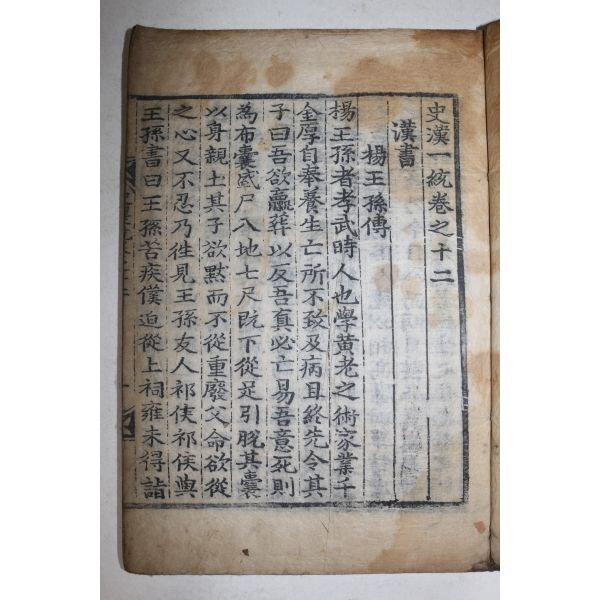 史漢一統卷之十二
漢書
楊王孫傳
楊王孫者孝武時人也學黃老之術家業千
金厚自奉養生亡所不致及病且終先令其
子曰吾欲臝葬以反吾真必亡易吾意死則
為布囊盛尸入地七尺旣下從足引脫其囊
以身親土其子欲默而不從重廢父命欲從
之心又不忍乃徃見王孫友人祁侯祁侯與
王孫書曰王孫苦疾僕迫從上祠雍未得詣